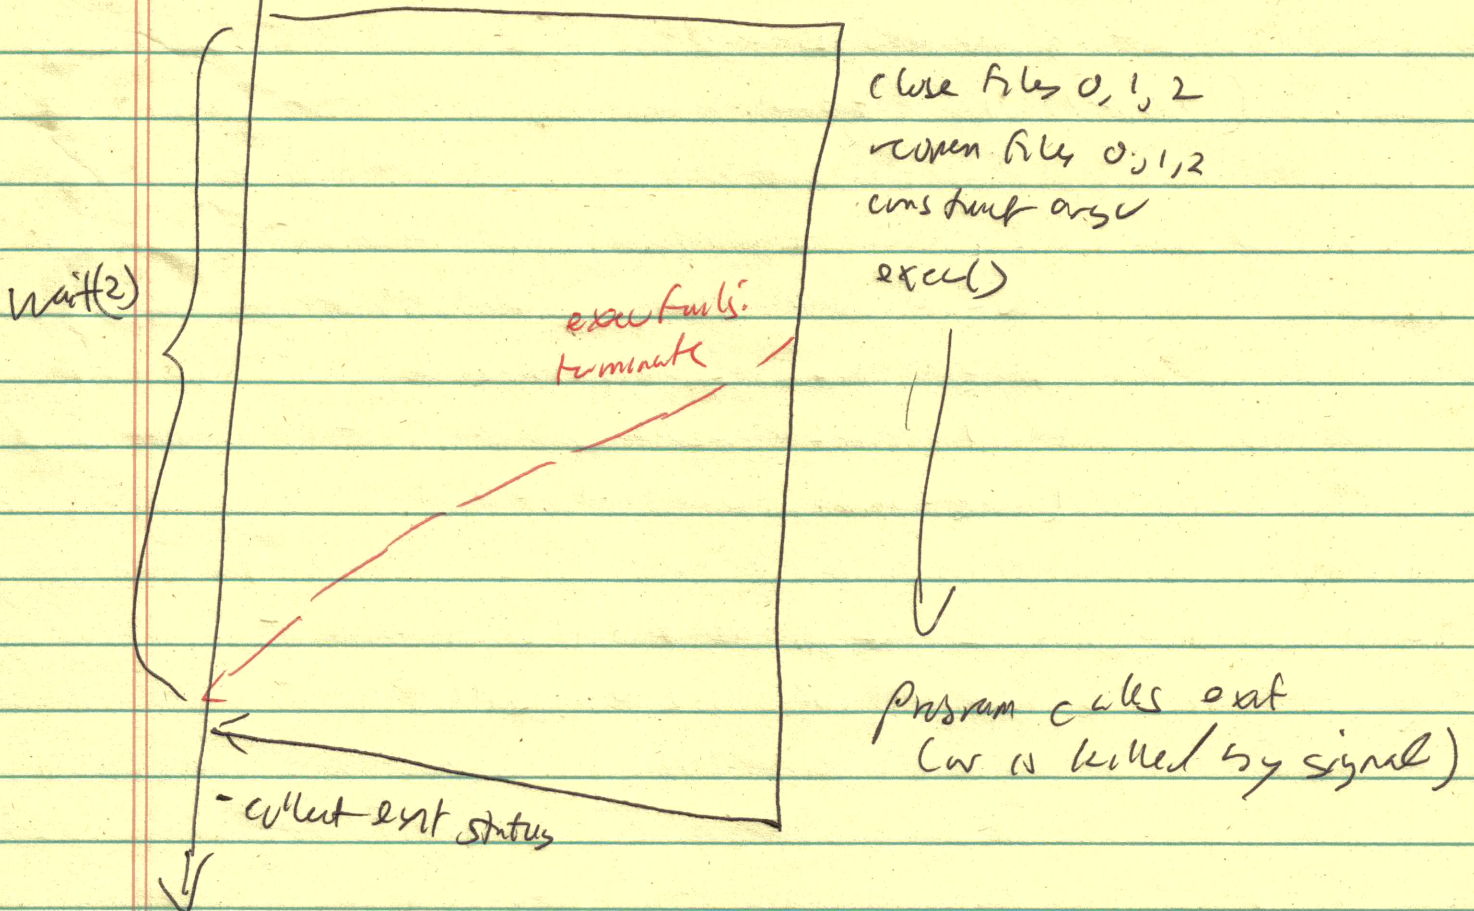 close files 0, 1, 2
reopen files 0, 1, 2
construct argv
exec()
wait(2)
exec fails:
terminate
program calls exit
(or is killed by signal)
- collect exit status